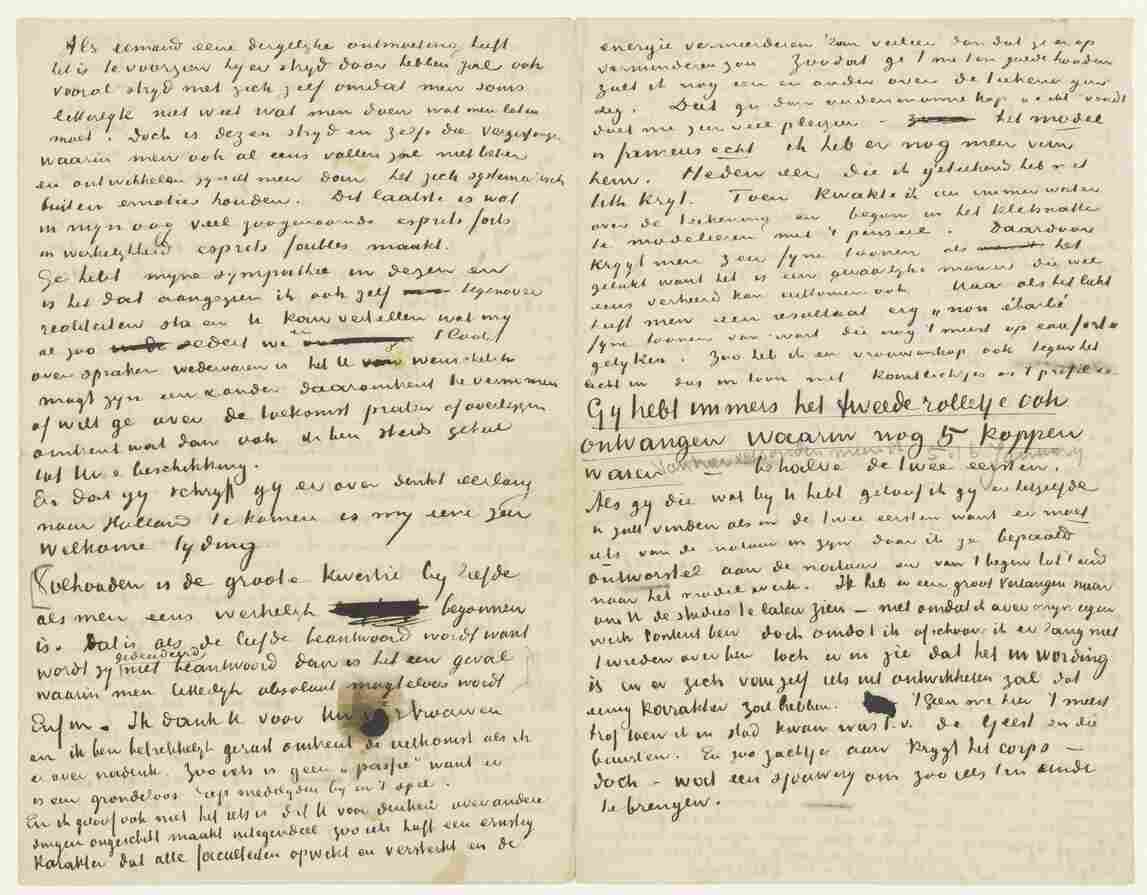 Als iemand eene dergelijke ontmoeting heeft
het is te voorzien hij er stryd door hebben zal ook
vooral stryd met zich zelf omdat men soms
letterlyk niet weet wat men doen wat men laten
moet. Doch is dezen stryd en zelfs die vergissingen
waarin men ook al eens vallen zal niet beter
en ontwikkelen zy niet meer dan het zich systematisch
buiten emoties houden. Dit laatste is wat
in myn oog veel zoogenaamde esprits forts
in werkelykheid esprits faibles maakt.
Ge hebt myne sympathie in dezen en
is het dat aangezien ik ook zelf tegenover
realiteiten sta en U kan vertellen wat my
al zoo sedert we er 't laatst
over spraken wedervaren is het U wenschelyk
mogt zyn een & ander daaromtrent te vernemen
of wilt ge over de toekomst praten of overleggen
omtrent wat dan ook ik ben steeds geheel
tot Uwe beschikking.
En dat gy schryft gy er over denkt eerlang
naar Holland te komen is my eene zeer
welkome tyding
Volhouden is de groote kwestie by liefde
als men eens werkelyk begonnen
is. Dat is als de liefde beantwoord wordt want
gedecideerd
wordt zy niet beantwoord dan is het een geval
waarin men letterlyk absoluut magteloos wordt
Enfin. Ik dank U voor Uw vertrouwen
en ik ben betrekkelyk gerust omtrent de uitkomst als ik
er over nadenk. Zoo iets is geen „passie" want er
is een grondeloos diep medelyden by in 't spel.
En ik geloof ook niet het iets is dat U voor denken over andere
dingen ongeschikt maakt integendeel zoo iets heeft een ernstig
karakter dat alle faculteiten opwekt en versterkt en de
energie vermeerderen zou veeleer dan dat ze er op
verminderen zou Zoodat ge 't me ten goede houden
zult ik nog een en ander over de teekening
zeg. Dat ge dien oudenmannekop „echt" vondt
doet me zeer veel pleizier – het model
is fameus echt ik heb er nog meer van
hem. Heden een die ik geteekend heb met
lith kryt. Toen kwakte ik een emmer water
over de teekening en begon in het kletsnatte
te modelleeren met 't penseel. Daardoor
krygt men zeer fyne toonen als het
gelukt want het is een gevaarlyke manier die wel
eens verkeerd kan uitkomen ook. Maar als het lukt
heeft men een resultaat erg „non ébarbé"
fyne toonen van zwart die nog 't meest op eau forte
gelyken. Zoo heb ik een vrouwenkop ook tegen het
licht in dus in toon met kantlichtjes op 't profiel
Gy hebt immers het tweede rolletje ook
ontvangen waarin nog 5 koppen
waren – behalve de twee eersten.
Als gy die wat by U hebt geloof ik gy er hetzelfde
in zult vinden als in de twee eersten want er moet
iets van de natuur in zyn daar ik ze bepaald
ontworsteld aan de natuur en van 't begin tot 't eind
naar het model werk. Ik heb er een groot verlangen naar
om U de studies te laten zien – niet omdat ik over myn eigen
werk kontent ben doch omdat ik ofschoon ik er lang niet
tevreden over ben toch er in zie dat het in wording
is en er zich van zelf iets uit ontwikkelen zal dat
eenig karakter zal hebben. 't Geen me hier 't meest
trof toen ik in stad kwam was t.v. de Geest en die
buurten. En zoo zachtjes aan krygt het corps –
doch – wat een sjouwery om zoo iets ten einde
te brengen.